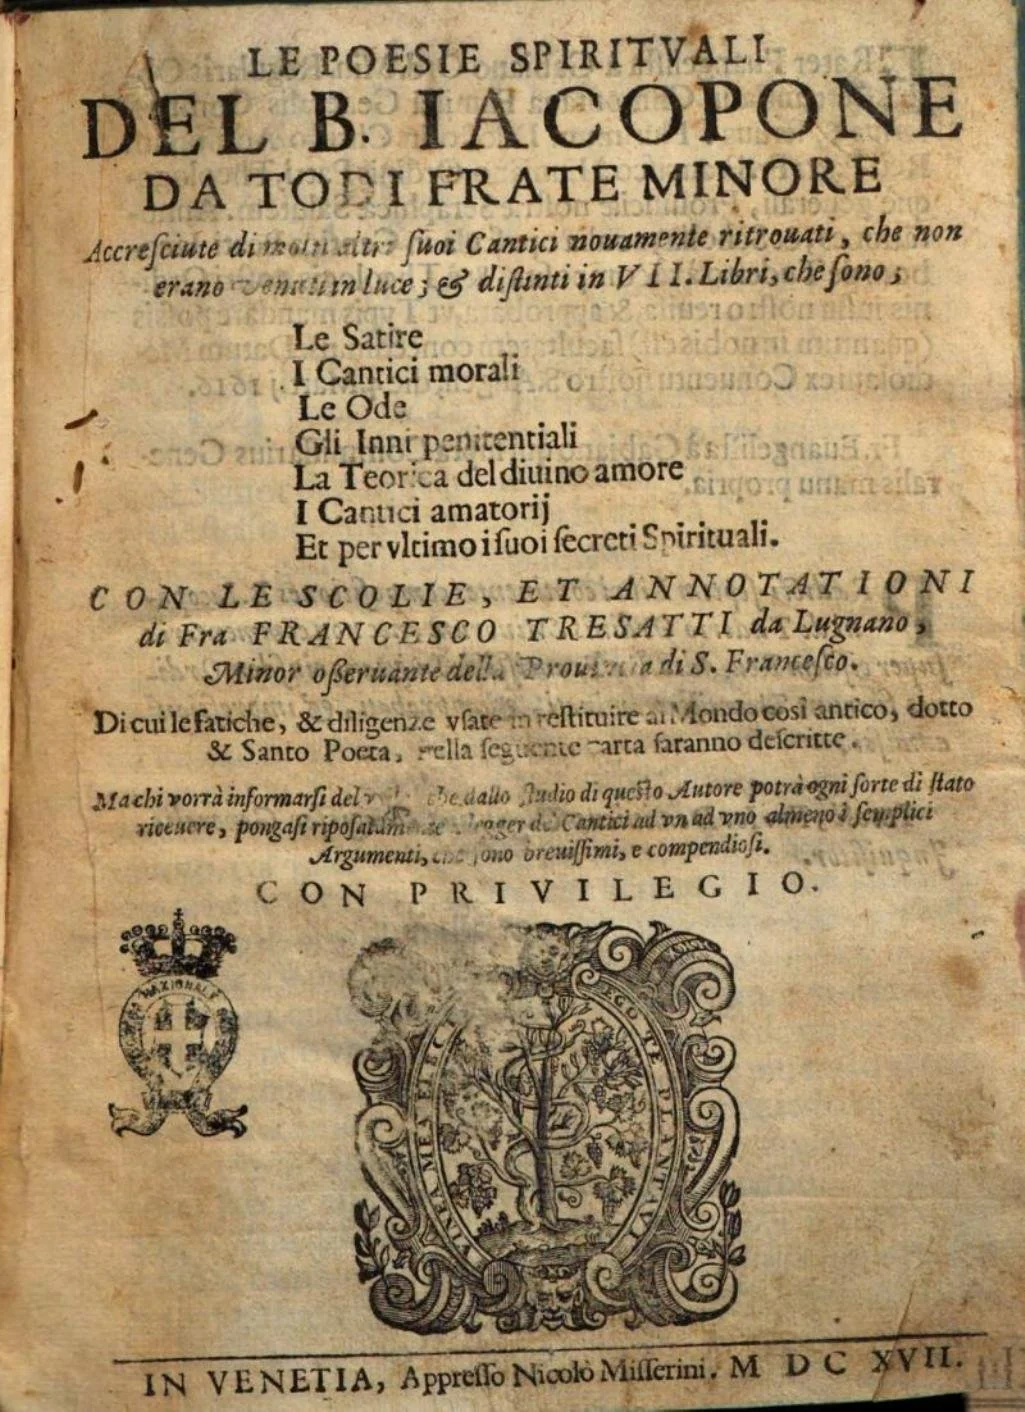 LE POESIE SPIRITVALI
DEL B. IACOPONE
DA TODI FRATE MINORE
Accreſciute di molti altri ſuoi Cantici nouamente ritrouati, che non
erano venuti in luce; & diſtinti in VII. Libri, che ſono;
Le Satire
I Cantici morali
Le Ode
Gli Inni penitentiali
La Teorica del diuino amore
I Cantici amatorij
Et per vltimo i ſuoi ſecreti Spirituali.
CON LE SCOLIE, ET ANNOTATIONI
di Fra FRANCESCO TRESATTI da Lugnano,
Minor oſſeruante della Prouincia di S. Franceſco.
Di cui le fatiche, & diligenze vſate in reſtituire al Mondo così antico, dotto
& Santo Poeta, nella ſeguente carta ſaranno deſcritte.
Ma chi vorrà informarſi del che dallo ſtudio di queſto Autore potrà ogni ſorte di ſtato
riceuere, pongaſi ripoſatamente de Cantici ad vn ad vno almeno i ſemplici
Argumenti, che ſono breuiſſimi, e compendioſi.
CON PRIVILEGIO.
NAZIONALE
VINEA MEA ELEC EGO TE PLANTAVI
IN VENETIA, Appreſſo Nicolò Miſſerini. M DC XVII.